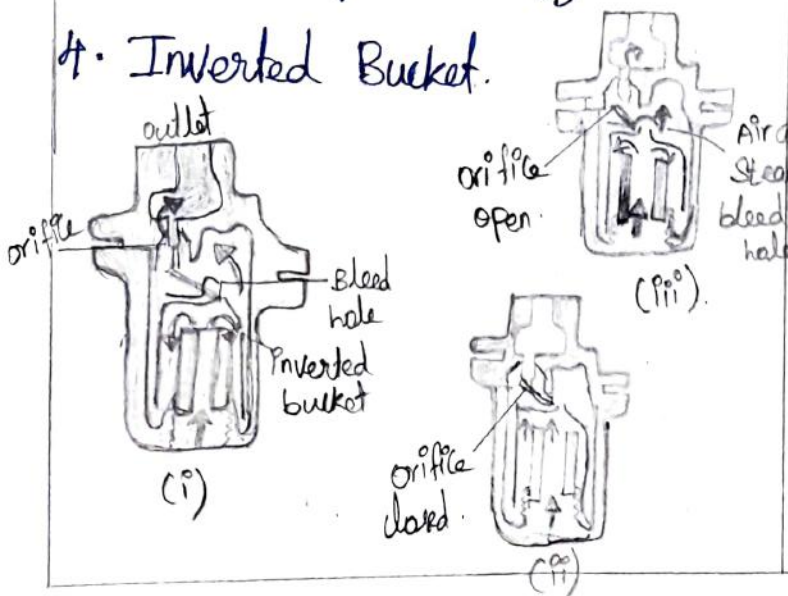 4. Inverted Bucket.
outlet
orifice
Bleed
hole
inverted
bucket
(i)
orifice
open.
Air
bleed
hole
(iii).
orifice
closed.
(ii)